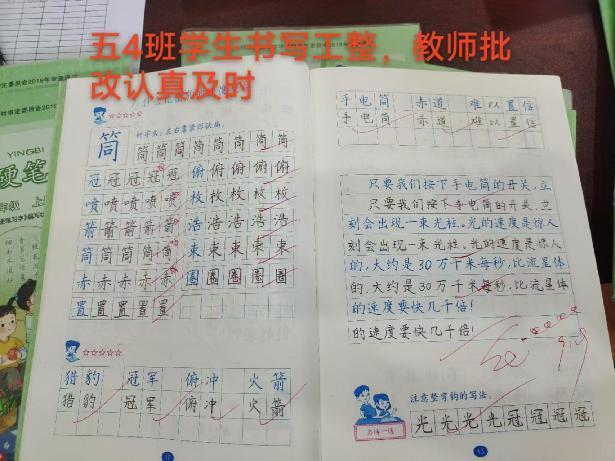 五4班学生书写工整，教师批
改认真及时
YINGBI
硬笔
筒 筒筒筒筒筒筒筒
冠冠冠冠冠 俯俯俯俯俯
喷喷喷喷喷 枚枚枚枚枚
箭箭箭箭箭 浩浩浩浩浩
筒筒筒筒筒 束束束束束
赤赤赤赤赤 圈圈圈圈圈
置置置置置
猎豹 冠军 俯冲 火箭
猎豹 冠军 俯冲 火箭
手电筒 赤道 难以置信
手电筒 赤道 难以置信
只要我们按下手电筒的开关，立
只要我们按下手电筒的开关，立
刻会出现一束光柱。光的速度是惊人
刻会出现一束光柱。光的速度是惊人
的，大约是30万千米每秒，比流星体
的，大约是30万千米每秒，比流星体
的速度要快几千倍！
的速度要快几千倍！
注意竖弯钩的写法。
光光光光冠冠冠冠
13